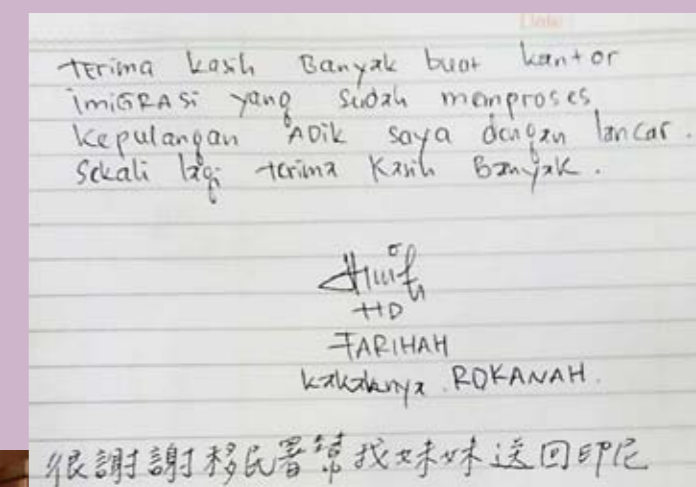 Date
Terima kasih Banyak buat kantor
imiGRASi yang sudah memproses
kepulangan ADik saya dengan lancar.
Sekali lagi terima Kasih Banyak.
ttD
FARIHAH
kakaknya ROKANAH.
很謝謝移民署幫我妹妹送回印尼